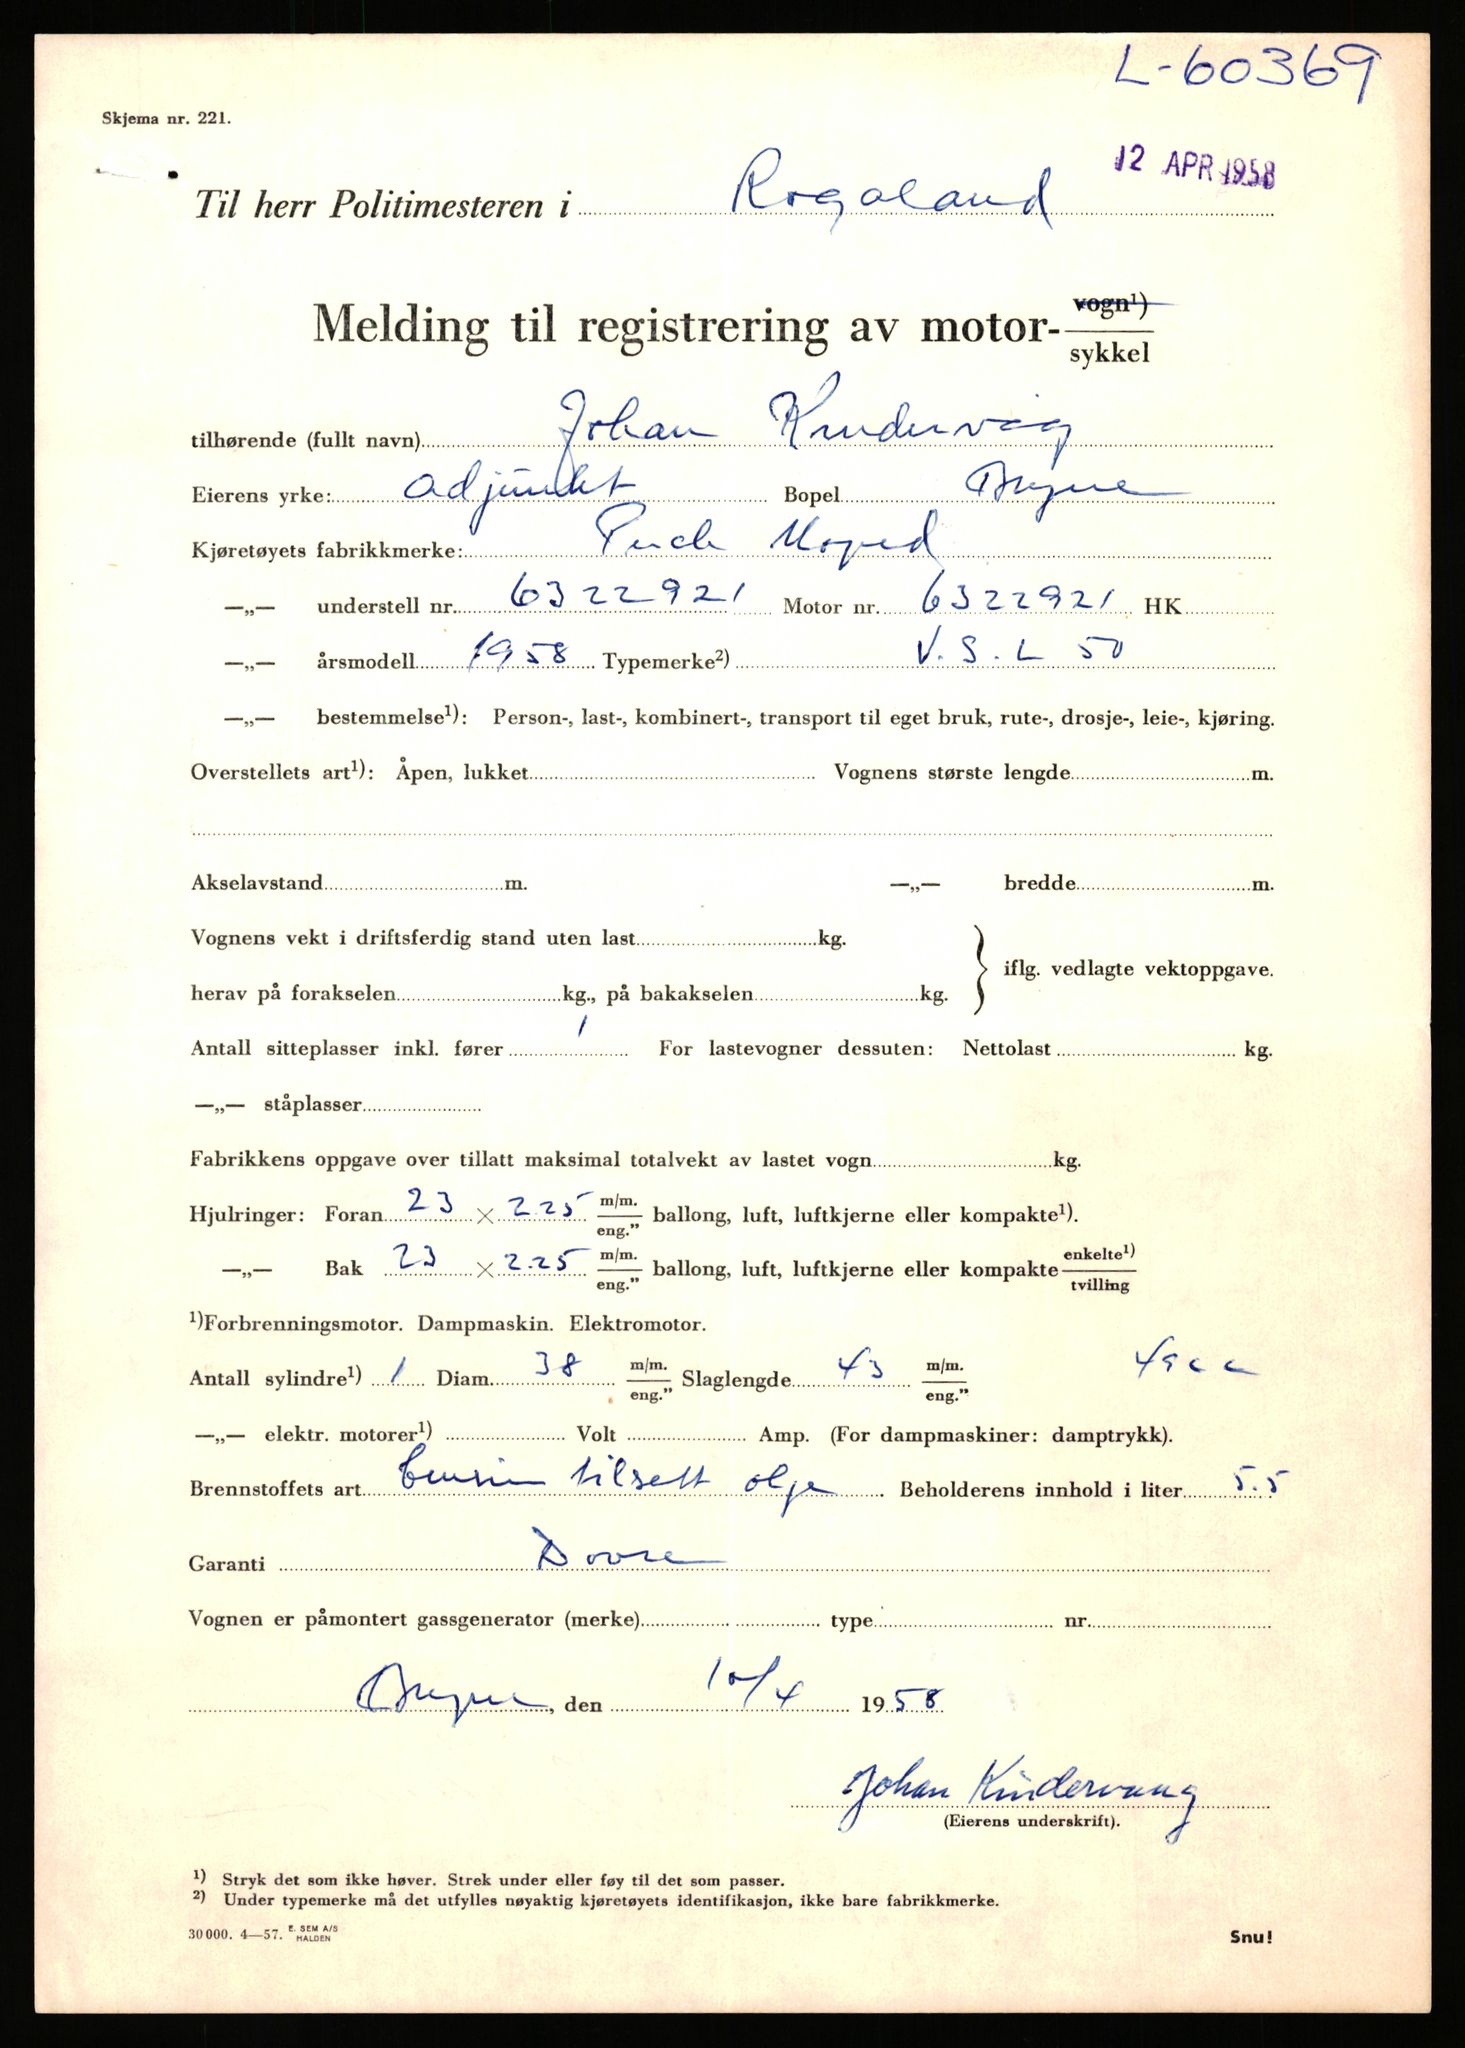 L-60369
Skjema nr. 221.
12 APR 1958
Til herr Politimesteren i Rogaland
Melding til registrering av motor- vogn¹) / sykkel
tilhørende (fullt navn) Johan Kindervåg
Eierens yrke: adjunkt Bopel Bryne
Kjøretøyets fabrikkmerke: Puch Moped
—„— understell nr. 6322921 Motor nr. 6322921 HK
—„— årsmodell 1958 Typemerke²) V.S.L 50
—„— bestemmelse¹): Person-, last-, kombinert-, transport til eget bruk, rute-, drosje-, leie-, kjøring.
Overstellets art¹): Åpen, lukket Vognens største lengde m.
Akselavstand m. —„— bredde m.
Vognens vekt i driftsferdig stand uten last kg.
iflg. vedlagte vektoppgave.
herav på forakselen kg., på bakakselen kg.
Antall sitteplasser inkl. fører 1 For lastevogner dessuten: Nettolast kg.
—„— ståplasser
Fabrikkens oppgave over tillatt maksimal totalvekt av lastet vogn kg.
Hjulringer: Foran 23 × 2.25 m/m. / eng.” ballong, luft, luftkjerne eller kompakte¹).
—„— Bak 23 × 2.25 m/m. / eng.” ballong, luft, luftkjerne eller kompakte enkelte¹) / tvilling
¹)Forbrenningsmotor. Dampmaskin. Elektromotor.
Antall sylindre¹) 1 Diam. 38 m/m. / eng.” Slaglengde 43 m/m. / eng.” 49cc
—„— elektr. motorer¹) Volt Amp. (For dampmaskiner: damptrykk).
Brennstoffets art bensin tilsett olje Beholderens innhold i liter 5.5
Garanti Dovre
Vognen er påmontert gassgenerator (merke) type nr.
Bryne, den 10/4 1958
Johan Kindervaag
(Eierens underskrift).
¹) Stryk det som ikke høver. Strek under eller føy til det som passer.
²) Under typemerke må det utfylles nøyaktig kjøretøyets identifikasjon, ikke bare fabrikkmerke.
30 000. 4—57. E. SEM A/S HALDEN
Snu!